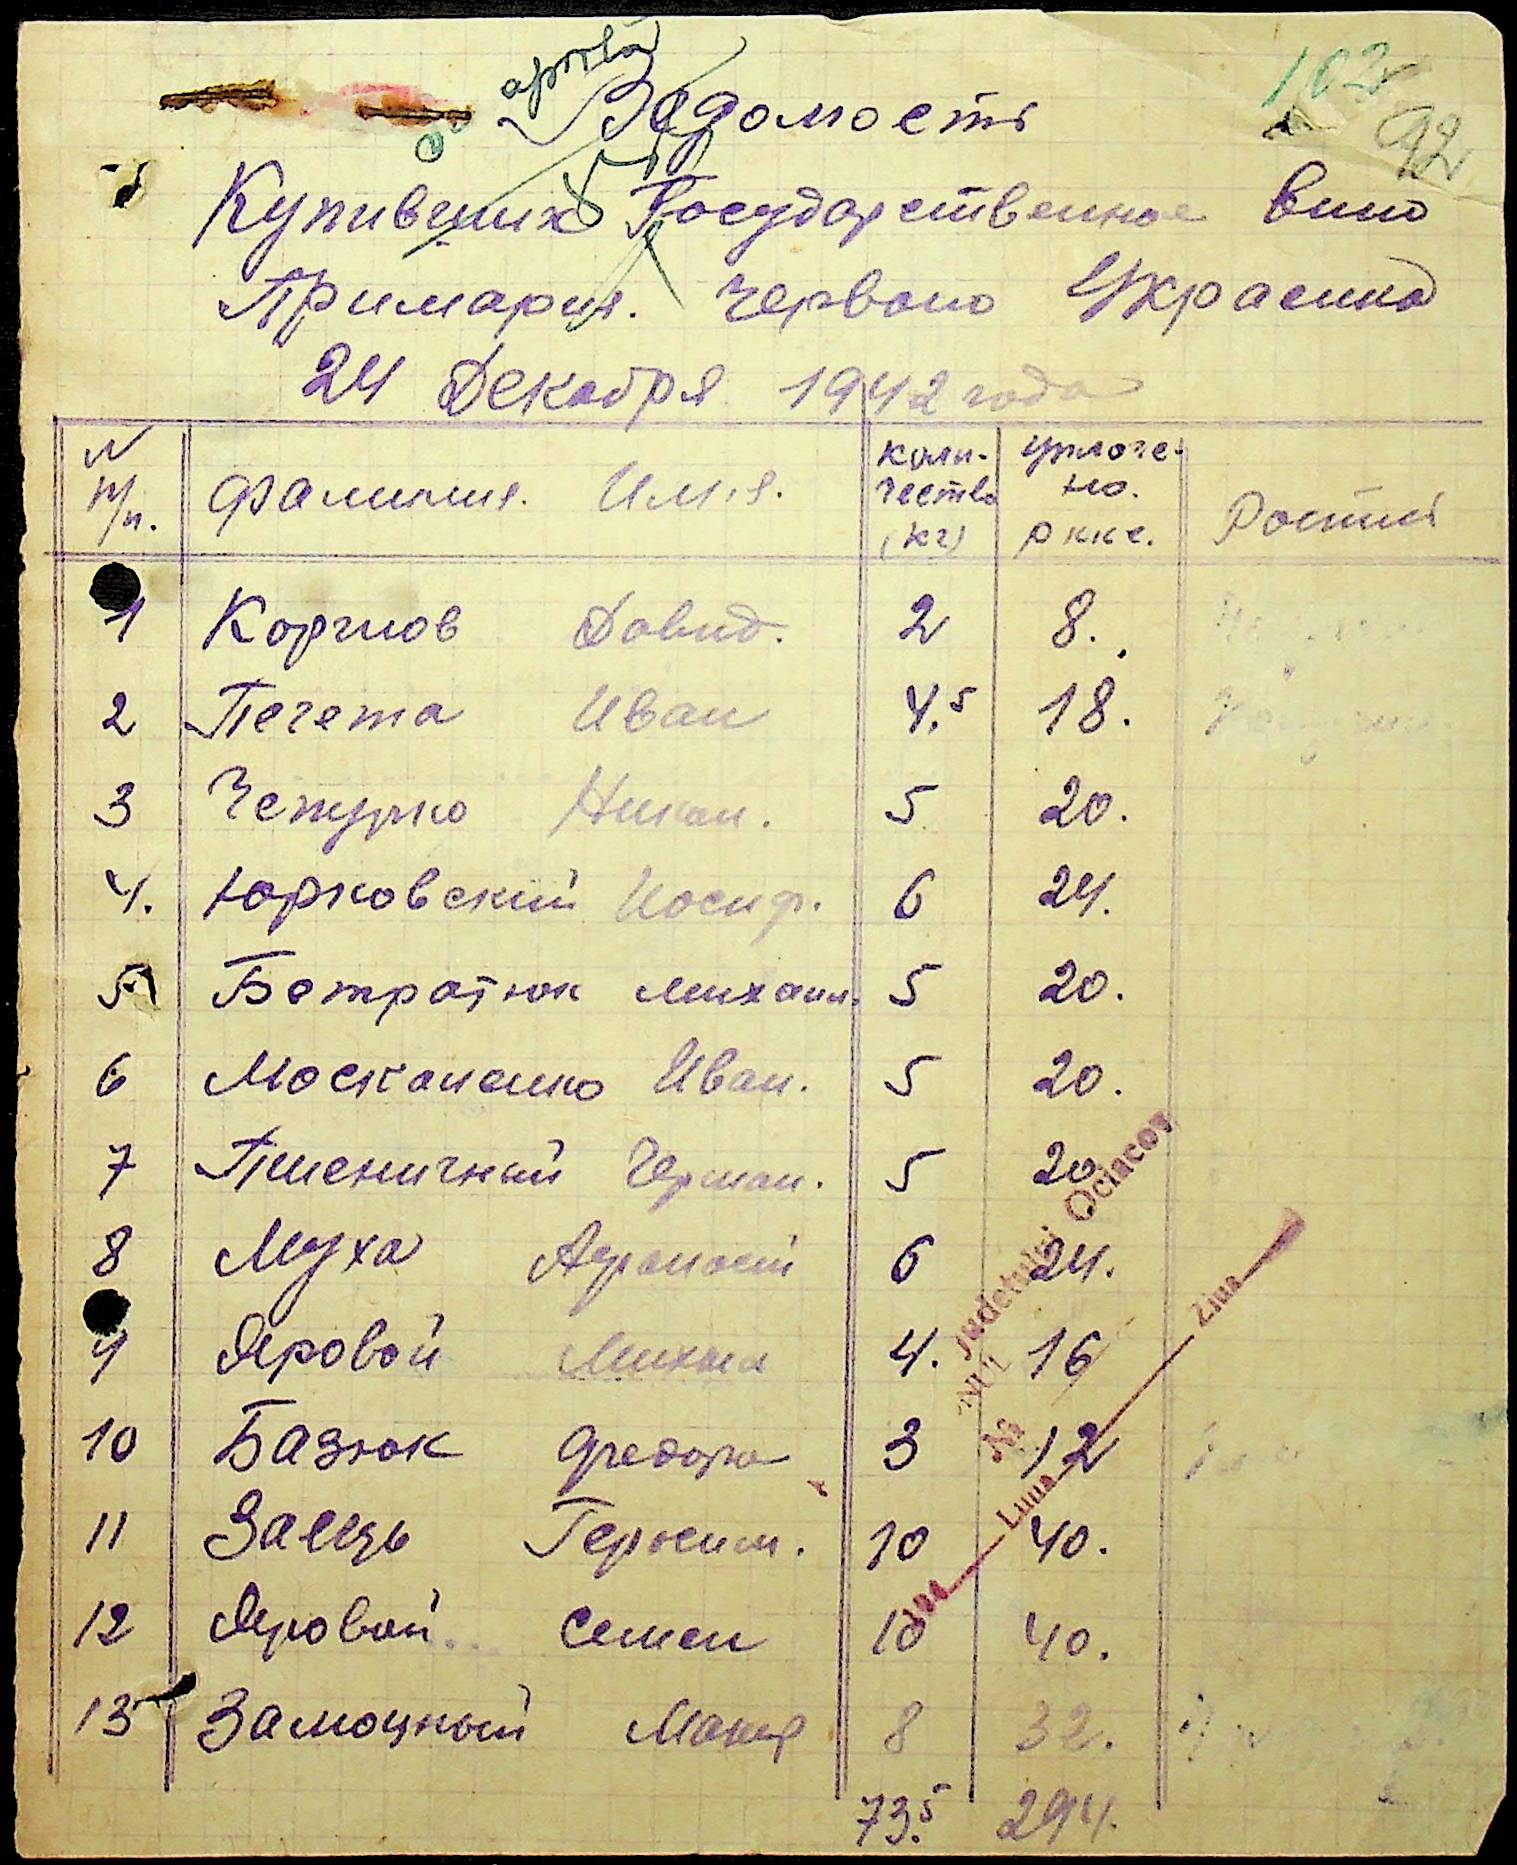 102
92
Ведомость
Купивших Государственное вино
Примария. Червоно Украинка
24 Декабря 1942 года
N п/п. Фамилия. Имя. Коли-чества (кг) Уплоче-но. Ркке. Роспись
1 Коржов Давид. 2 8.
2 Печета Иван 4.5 18.
3 Чепурко Никан. 5 20.
4. Юрковский Иосиф. 6 24.
5 Михаил. 5 20.
6 Москаленко Иван. 5 20.
7 Пшеничный Герман. 5 20.
8 Муха 6 24.
9 Яровой Михаил 4. 16
10 Базюк Федор 3 12
11 Заець Герасим. 10 40.
12 Яровой Семен 10 40.
13 Замоцный 8 32.
73.5 294.
Judetului Ociacov
No
194 Luna Ziua